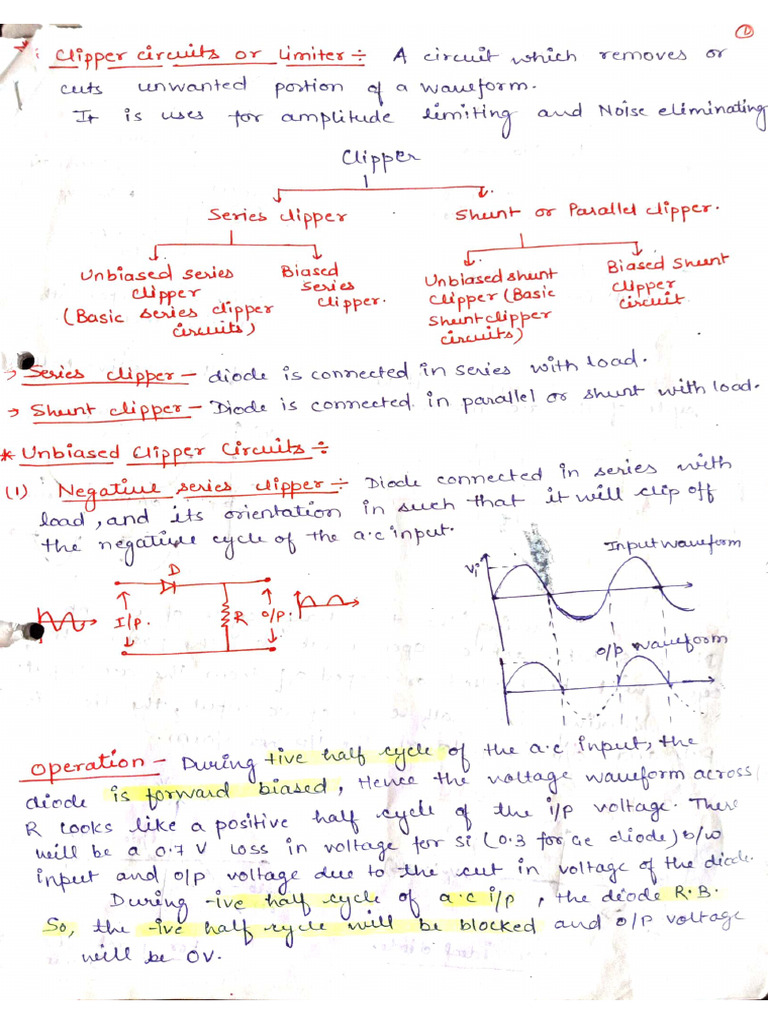 1
Clipper circuits or Limiter ÷ A circuit which removes or
cuts unwanted portion of a waveform.
It is uses for amplitude limiting and Noise eliminating
Clipper
Series clipper
Shunt or Parallel clipper.
Unbiased series
clipper
(Basic series clipper
circuits)
Biased
series
clipper.
Unbiased shunt
clipper (Basic
shunt clipper
circuits)
Biased shunt
clipper
circuit
→ Series clipper – diode is connected in series with load.
→ Shunt clipper – Diode is connected in parallel or shunt with load.
* Unbiased Clipper Circuits ÷
(1) Negative series clipper ÷ Diode connected in series with
load, and its orientation in such that it will clip off
the negative cycle of the a.c input.
D
I/P.
R
O/P.
Input waveform
Vi
O/P waveform
Operation – During +ive half cycle of the a.c input, the
diode is forward biased, Hence the voltage waveform across
R looks like a positive half cycle of the i/p voltage. There
will be a 0.7 V loss in voltage for Si (0.3 for Ge diode) b/w
input and o/p voltage due to the cut in voltage of the diode.
During -ive half cycle of a.c i/p, the diode R.B.
So, the -ive half cycle will be blocked and o/p voltage
will be 0V.